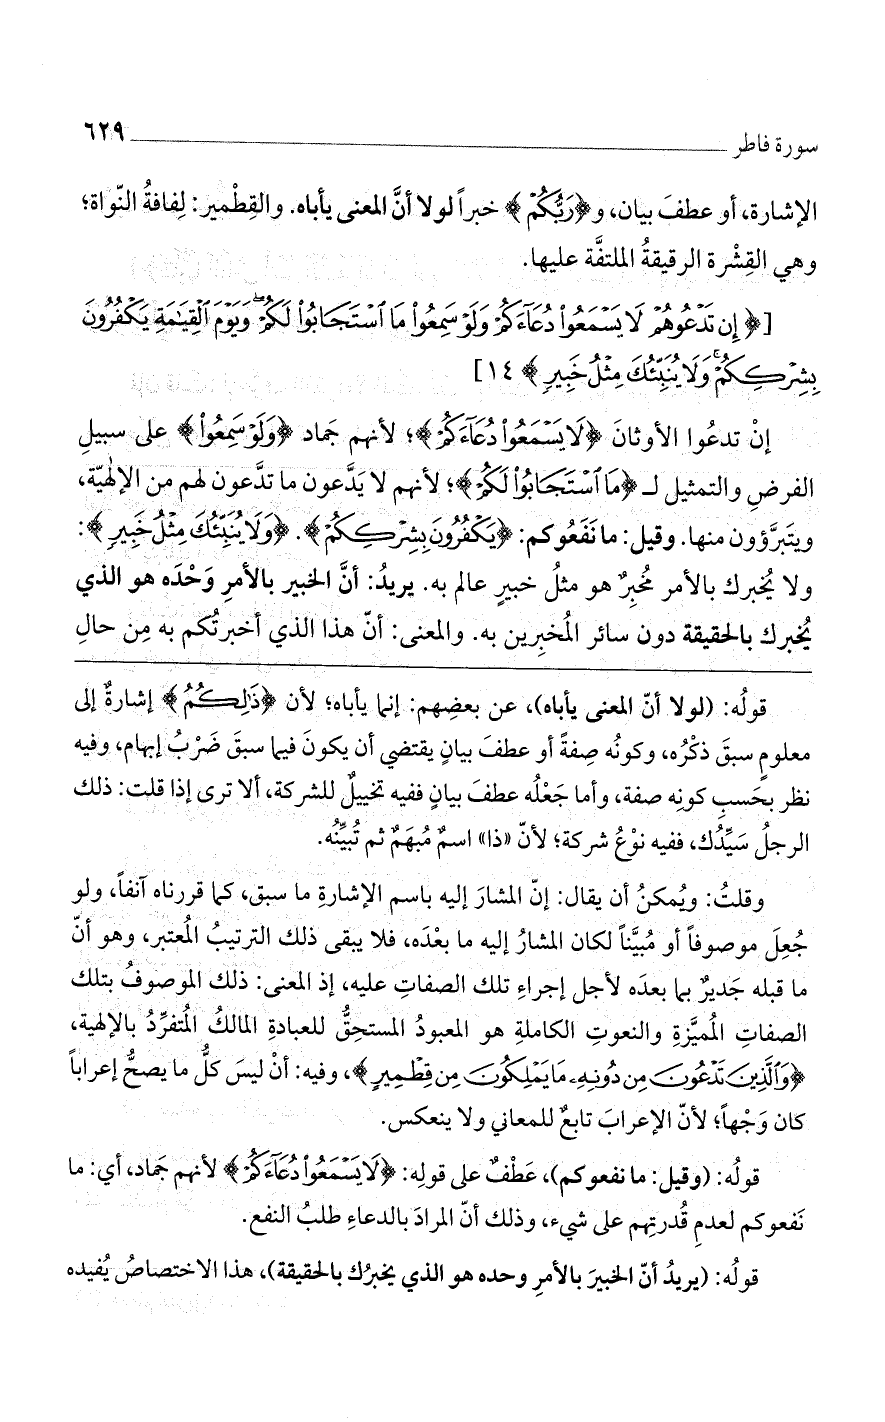 سورة فاطر ٦٢٩
الإشارة، أو عطفَ بيان، و﴿رَبُّكُمْ﴾ خبراً لولا أنَّ المعنى يأباه. والقِطْمير: لِفافةُ النّواة؛
وهي القِشْرة الرقيقةُ الملتفَّة عليها.
[﴿إِن تَدْعُوهُمْ لَا يَسْمَعُوا۟ دُعَآءَكُمْ وَلَوْ سَمِعُوا۟ مَا ٱسْتَجَابُوا۟ لَكُمْ ۖ وَيَوْمَ ٱلْقِيَٰمَةِ يَكْفُرُونَ
بِشِرْكِكُمْ ۚ وَلَا يُنَبِّئُكَ مِثْلُ خَبِيرٍ﴾ ١٤]
إنْ تدعُوا الأوثانَ ﴿لَا يَسْمَعُوا۟ دُعَآءَكُمْ﴾؛ لأنهم جَماد ﴿وَلَوْ سَمِعُوا۟﴾ على سبيلِ
الفرضِ والتمثيل لـ ﴿مَا ٱسْتَجَابُوا۟ لَكُمْ﴾؛ لأنهم لا يَدَّعون ما تدَّعون لهم من الإلٰهيّة،
ويتبرَّؤون منها. وقيل: ما نَفَعُوكم: ﴿يَكْفُرُونَ بِشِرْكِكُمْ﴾. ﴿وَلَا يُنَبِّئُكَ مِثْلُ خَبِيرٍ﴾:
ولا يُخبرك بالأمر مُخبِرٌ هو مثلُ خبيرٍ عالم به. يريدُ: أنَّ الخبير بالأمرِ وَحْدَه هو الذي
يُخبرك بالحقيقة دون سائر المُخبِرين به. والمعنى: أنّ هذا الذي أخبرتُكم به مِن حالِ
قولُه: (لولا أنّ المعنى يأباه)، عن بعضِهم: إنما يأباه؛ لأن ﴿ذَٰلِكُمُ﴾ إشارةٌ إلى
معلومٍ سبقَ ذكْرُه، وكونُه صِفةً أو عطفَ بيانٍ يقتضي أن يكونَ فيما سبقَ ضَرْبُ إبهام، وفيه
نظر بحَسبِ كونِه صفة، وأما جَعْلُه عطفَ بيانٍ ففيه تخييلٌ للشركة، ألا ترى إذا قلت: ذلك
الرجلُ سَيِّدُك، ففيه نوْعُ شركة؛ لأنّ «ذا» اسمٌ مُبهَمٌ ثم تُبيِّنُه.
وقلتُ: ويُمكنُ أن يقال: إنّ المشارَ إليه باسم الإشارةِ ما سبق، كما قررناه آنفاً، ولو
جُعِلَ موصوفاً أو مُبيَّناً لكان المشارُ إليه ما بعْدَه، فلا يبقى ذلك الترتيبُ المُعتبر، وهو أنّ
ما قبله جَديرٌ بما بعدَه لأجل إجراءِ تلك الصفاتِ عليه، إذ المعنى: ذلك الموصوفُ بتلك
الصفاتِ المُميِّزةِ والنعوتِ الكاملةِ هو المعبودُ المستحِقُّ للعبادةِ المالكُ المُتفرِّدُ بالإلهية،
﴿وَٱلَّذِينَ تَدْعُونَ مِن دُونِهِۦ مَا يَمْلِكُونَ مِن قِطْمِيرٍ﴾، وفيه: أنْ ليسَ كلُّ ما يصحُّ إعراباً
كان وَجْهاً؛ لأنّ الإعرابَ تابعٌ للمعاني ولا ينعكس.
قولُه: (وقيل: ما نفعوكم)، عَطْفٌ على قولِه: ﴿لَا يَسْمَعُوا۟ دُعَآءَكُمْ﴾ لأنهم جَماد، أي: ما
نَفعوكم لعدمِ قُدرتِهم على شيء، وذلك أنّ المرادَ بالدعاءِ طلبُ النفع.
قولُه: (يريدُ أنّ الخبيرَ بالأمرِ وحده هو الذي يخبرُك بالحقيقة)، هذا الاختصاصُ يُفيده